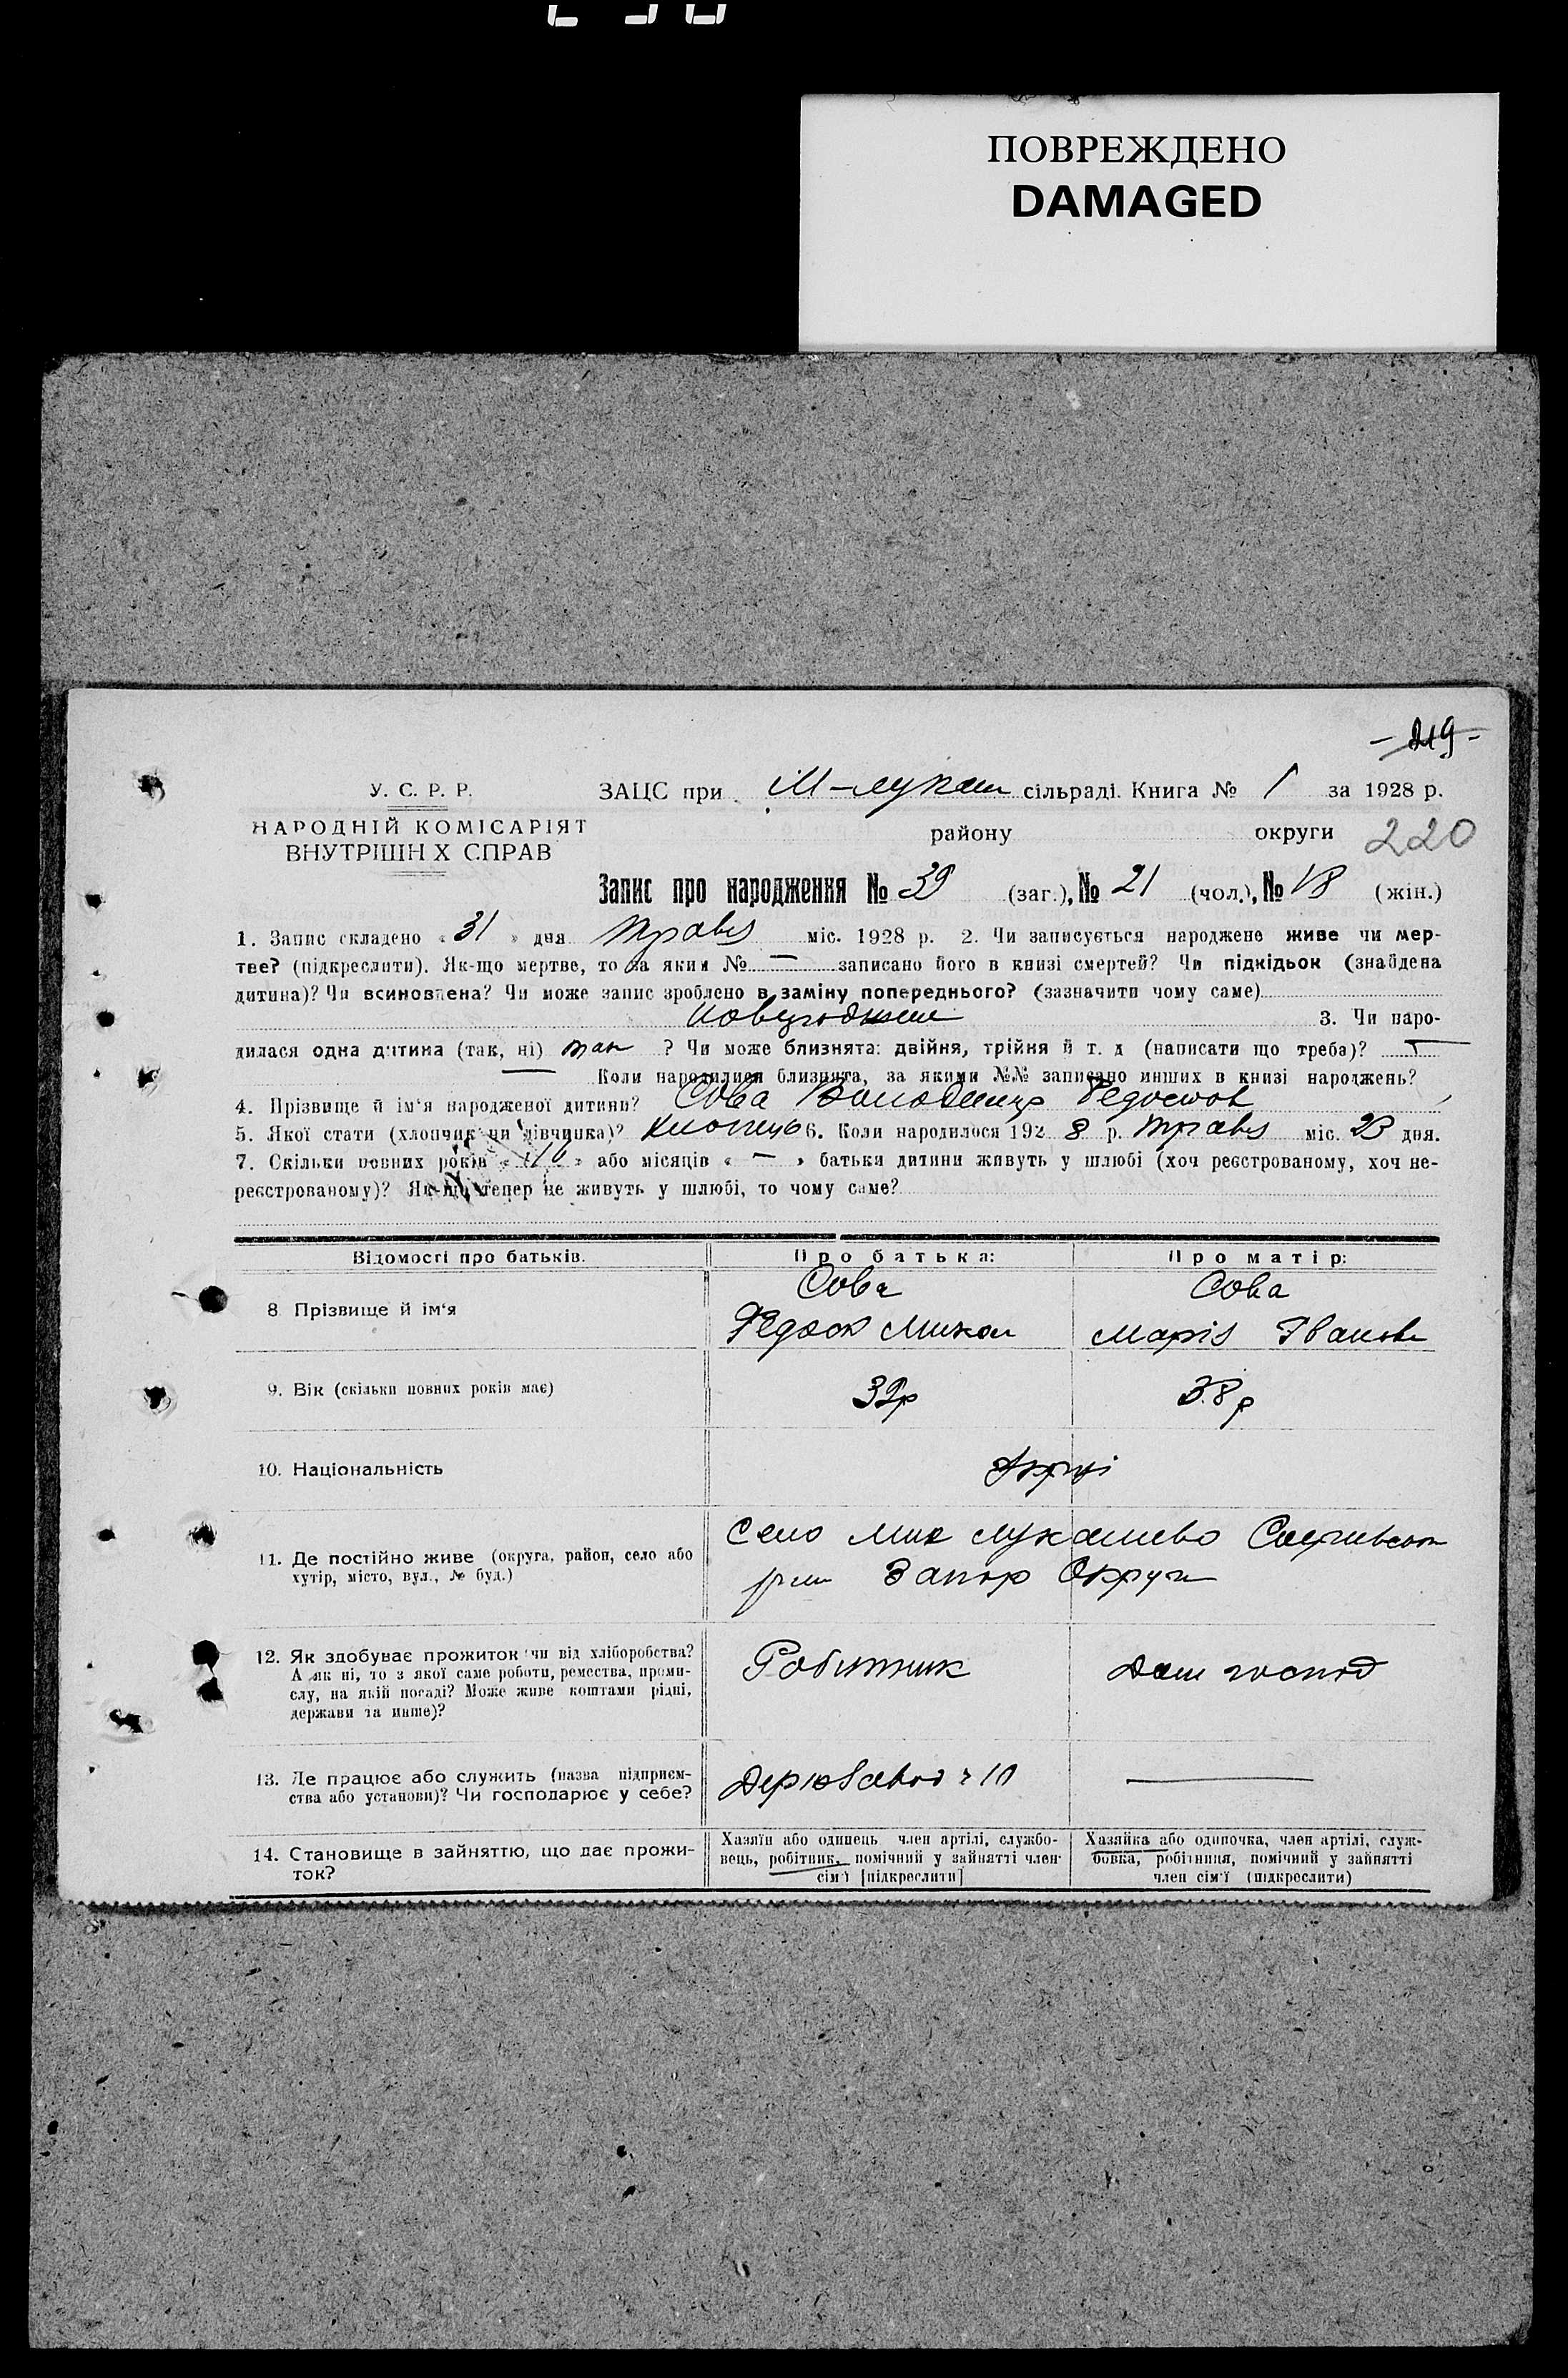 ПОВРЕЖДЕНО
DAMAGED
- 219 -
У. С. Р. Р.
ЗАЦС при М-лукаш сільраді. Книга № 1 за 1928 р.
НАРОДНІЙ КОМІСАРІЯТ
району округи 220
ВНУТРІШН Х СПРАВ
Запис про народження № 39 (заг.), № 21 (чол.), № 18 (жін.)
1. Запис складено « 31 » дня Травня міс. 1928 р. 2. Чи записується народжене живе чи мер-
тве? (підкреслити). Як-що мертве, то за яким № — записано його в книзі смертей? Чи підкідьок (знайдена
дитина)? Чи всиновлена? Чи може запис зроблено в заміну попереднього? (зазначити чому саме)
3. Чи наро-
дилася одна дитина (так, ні) так ? Чи може близнята: двійня, трійня й т. д (написати що треба)? —
— Коли народилися близнята, за якими №№ записано инших в книзі народжень?
4. Прізвище й ім'я народженої дитини? Сова Володимир Федосов
5. Якої стати (хлопчик чи дівчинка)? Хлопець 6. Коли народилося 192 8 р. Травня міс. 23 дня.
7. Скільки повних років « 16 » або місяців « — » батьки дитини живуть у шлюбі (хоч реєстрованому, хоч не-
реєстрованому)? Як-що тепер не живуть у шлюбі, то чому саме?
Відомості про батьків. Про батька: Про матір:
Сова Сова
8 Прізвище й ім'я
Федось Микол Марія Іванов
9. Вік (скільки повних років має) 39р 38р
10. Національність Укрці
Село Мик Лукашево Софиевськ
11. Де постійно живе (округа, район, село або
хутір, місто, вул., № буд.)
Запор Округи
12. Як здобуває прожиток чи від хліборобства? Робитник Дом господ
А як ні, то з якої саме роботи, ремества, проми-
слу, на якій посаді? Може живе коштами рідні,
держави та инше)?
13. Де працює або служить (назва підприєм-
ства або установи)? Чи господарює у себе?
Держзавод № 10 —
14. Становище в зайняттю, що дає прожи-
ток?
Хазяїн або одинець член артілі, службо-
вець, робітник, помічний у зайнятті член
сім'ї [підкреслити]
Хазяйка або одиночка, член артілі, служ-
бовка, робітниця, помічний у зайнятті
член сім'ї (підкреслити)